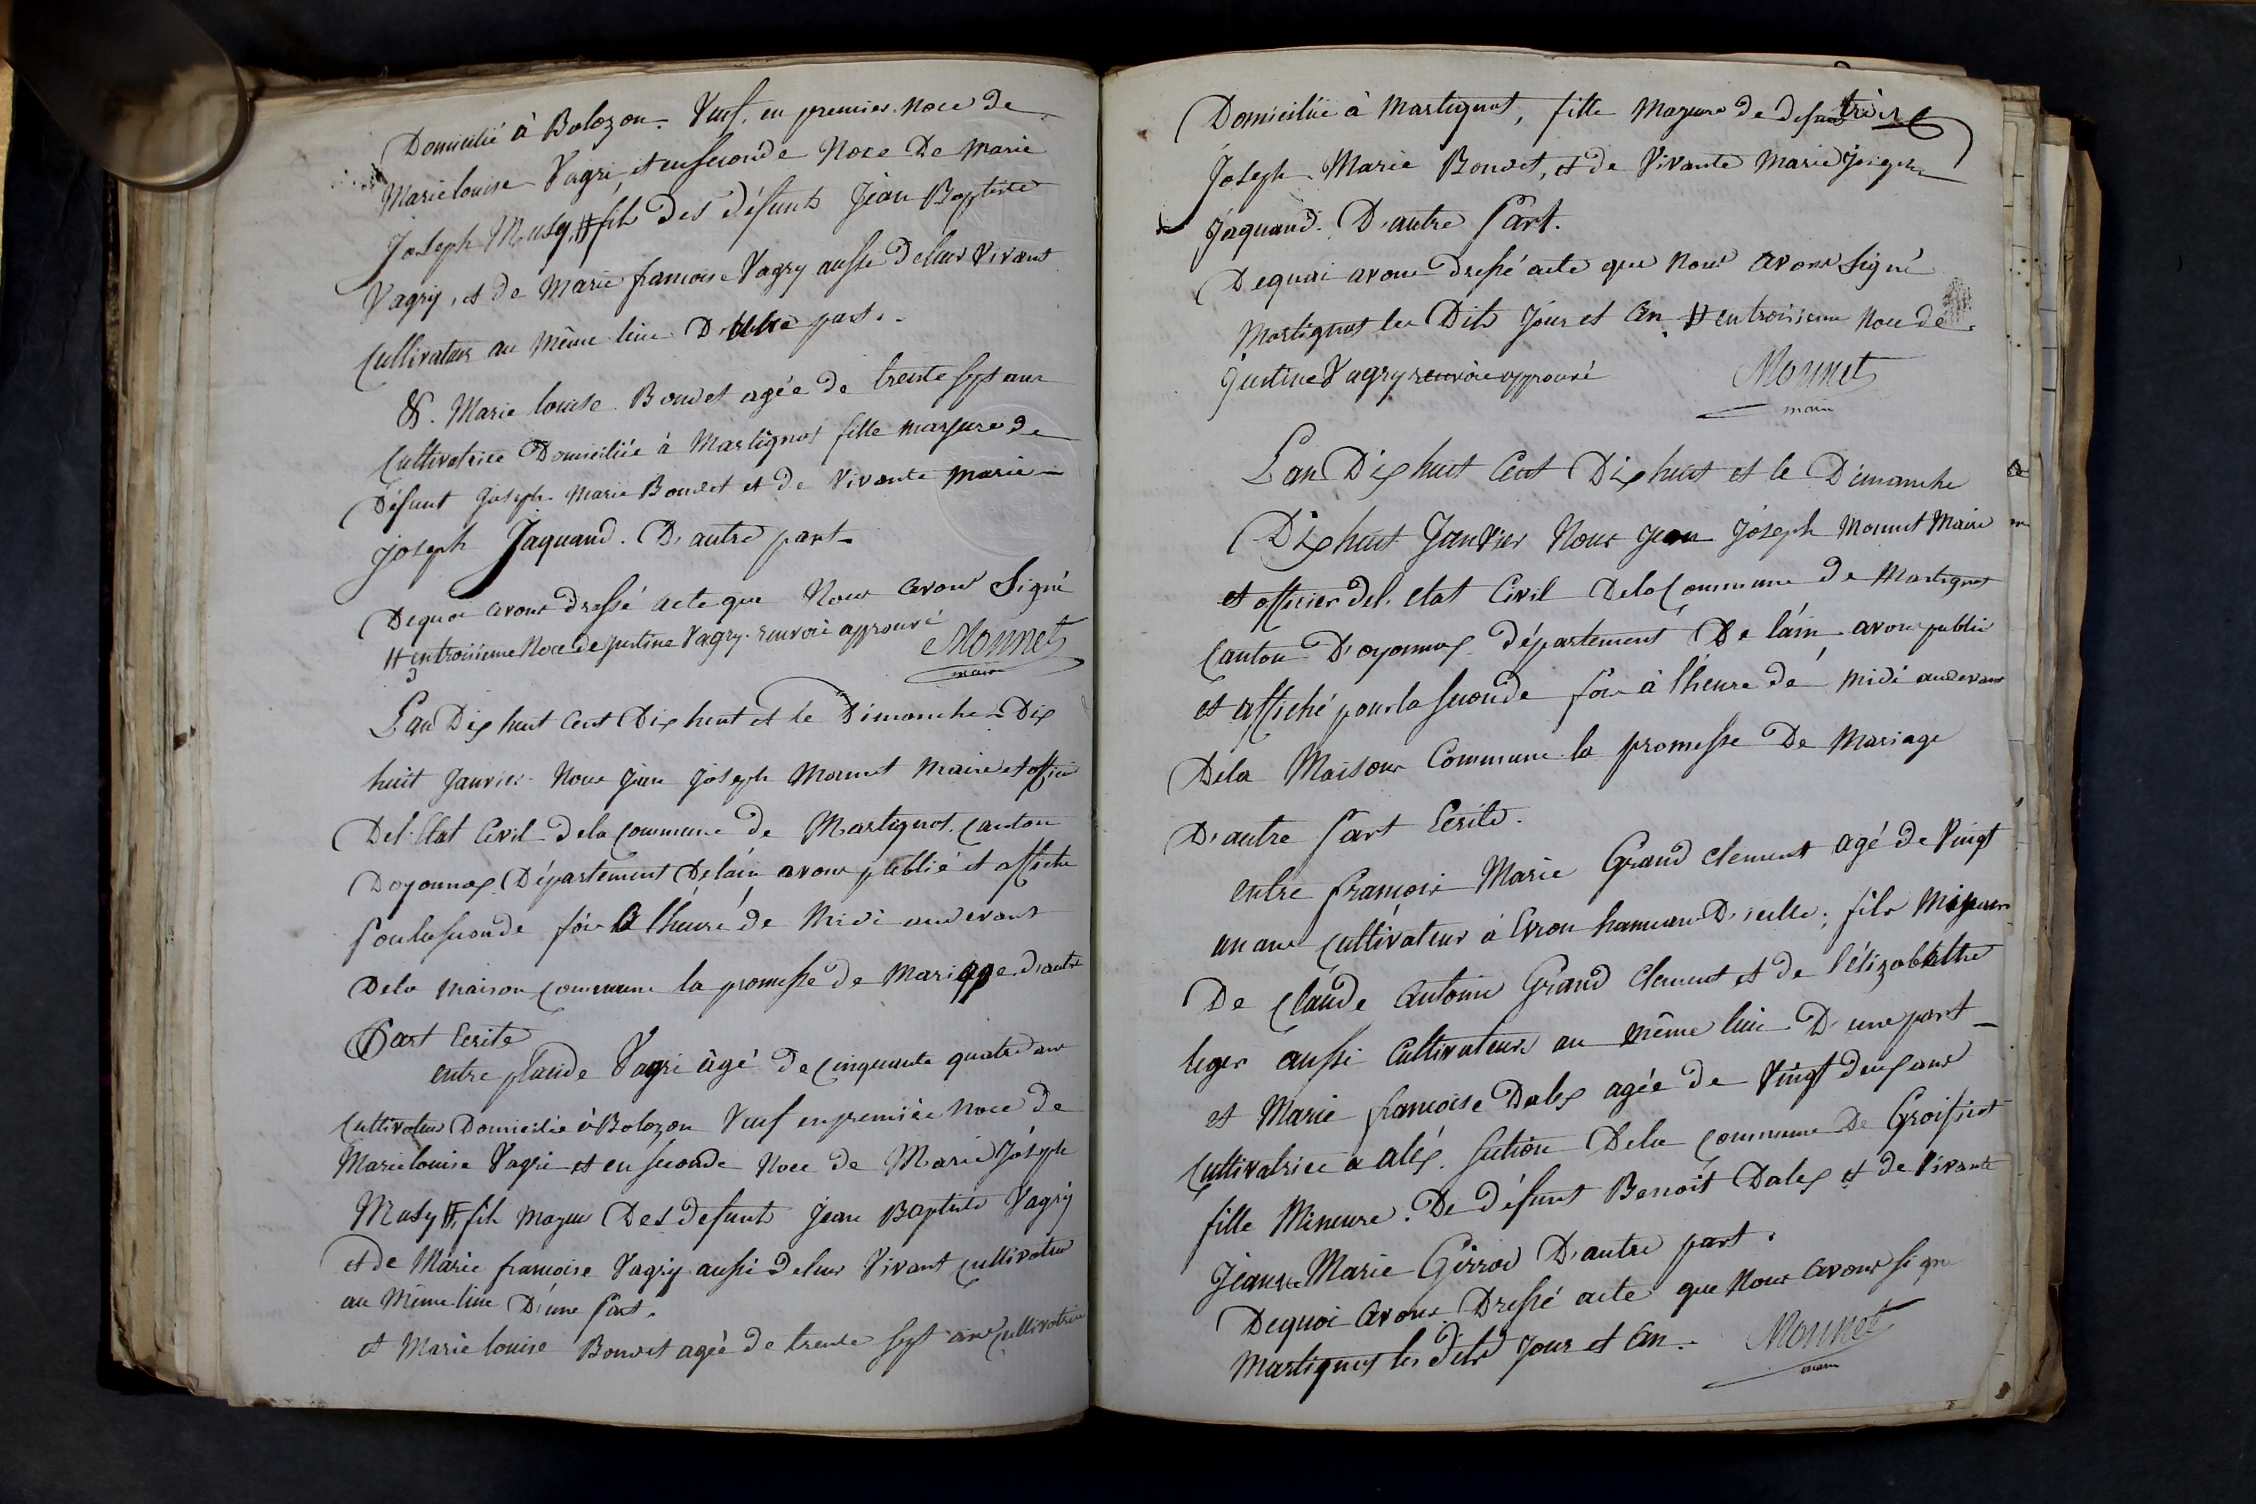 Domicilié à Bolozon. Veuf. en premier noce de
Marie louise Vagri, et en seconde Noce De Marie
Joseph Musy, # fils Des défunts Jean Baptiste
Vagry, et de Marie francoise Vagry aussi deleur Vivant
Cultivateurs au Même lieu D'une part.
&. Marie louise Bouvet agée de trente sept ans
Cultivatrice Domiciliée à Martignat fille majeure de
Défunt Joseph Marie Bouvet et de Vivante Marie
Joseph Jaquand. D'autre part
Dequoi avons dressé acte que Nous avons Signé
# en troisieme Noce de Justine Vagry. renvoi approuvé Monnet
maire
L'an Dix huit Cent Dix huit et le Dimanche Dix
huit Janvier Nous Jean Joseph Monnet Maire et officier
Del'Etat Civil dela Commune de Martignat. Canton
Doyonnax Département Delain avons publié et affiché
Pour la seconde fois à lheure de Midi audevant
Dela maison commune la promesse de Mariage d'autre
Part Ecrite
entre placide Vagri âgé de cinquante quatre ans
Cultivateur Domicilié à Bolozon Veuf en premiere Noce de
Marie louise Vagri et en seconde Noce de Marie Joseph
Musy #, fils Majeur Des defunts Jean Baptiste Vagry
et de Marie francoise Vagry aussi deleur Vivant Cultivateur
au Même lieu D'une Part.
et Marie louise Bouvet agée de trente sept ans Cultivatrice
Domiciliée à Martignat, fille Majeure de defunt
Joseph Marie Bouvet, et de Vivante Marie Joseph
Jaquand. D'autre Part.
Dequoi avons dressé acte que Nous avons Signé
Martignat les Dits Jour et an # en troisieme Noce de
Justine Vagry renvoie approuvé Monnet
maire
L'an Dix huit Cent Dix huit et le Dimanche
Dix huit Janvier Nous Jean Joseph Monnet Maire
et officier del'etat Civil Dela Commune de Martignat
Canton D'oyonnax département De lain avons publié
et affiché pour la seconde fois à l'heure de Midi audevant
Dela Maison Commune la promesse De Mariage
D'autre Part Ecrite.
entre francois Marie Grand clement agé de Vingt
un ans Cultivateur à Evron hameau D'icelle, fils Mineur
De Claude Antoine Grand Clement et de l'élizabethe
leger aussi Cultivateurs au même lieu D'une part
et Marie francoise Dalex agée de Vingt deux ans
Cultivatrice a alex Dela commune De Groissiat
fille Mineure. De défunt Benoit Dalex et de Vivante
Jeanne Marie Girrod D'autre part.
Dequoi avons Dressé acte que Nous avons signé
Martignat les Dits Jour et an. Monnet
maire